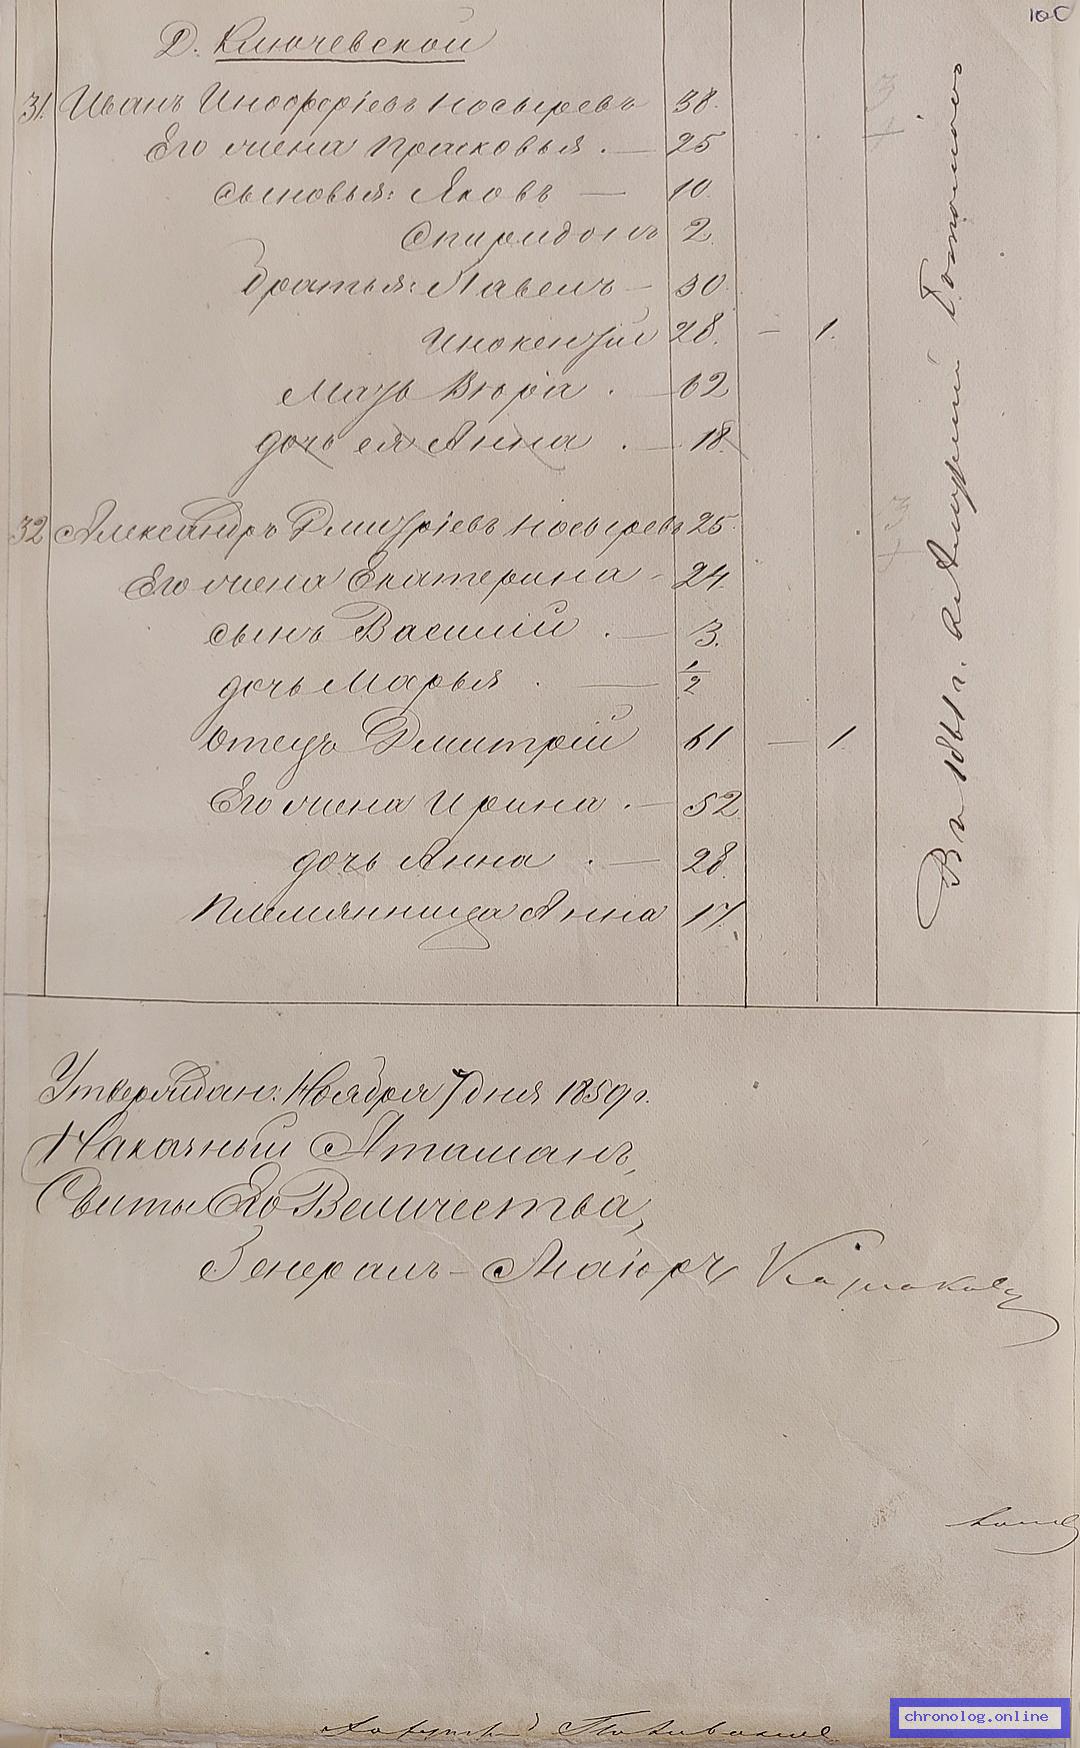 Д. Ключевской
31. Иванъ Инофоріевъ Носыревъ 38.
Его жена Прасковья . — 25
сыновья: Яковъ — 10.
Спиридонъ 2
братья: Павелъ — 30.
Инокентій 28. — 1.
Мать Вѣра . — 62
дочь ея Анна . — 18.
32 Александръ Дмитріевъ Носыревъ 25.
Его жена Екатерина - 24.
сынъ Василій . — 3.
дочь Марья . — 1/2
Отецъ Дмитрій 61 — 1.
Его жена Ирина . — 52
дочь Анна . — 28.
Племянница Анна 17.
Въ 1861 г. на Амурѣ
Утверждаю: Ноября 7 дня 1859 г.
Наказный Атаманъ,
Свиты Его Величества,
Генералъ-Маіоръ
chronolog.online